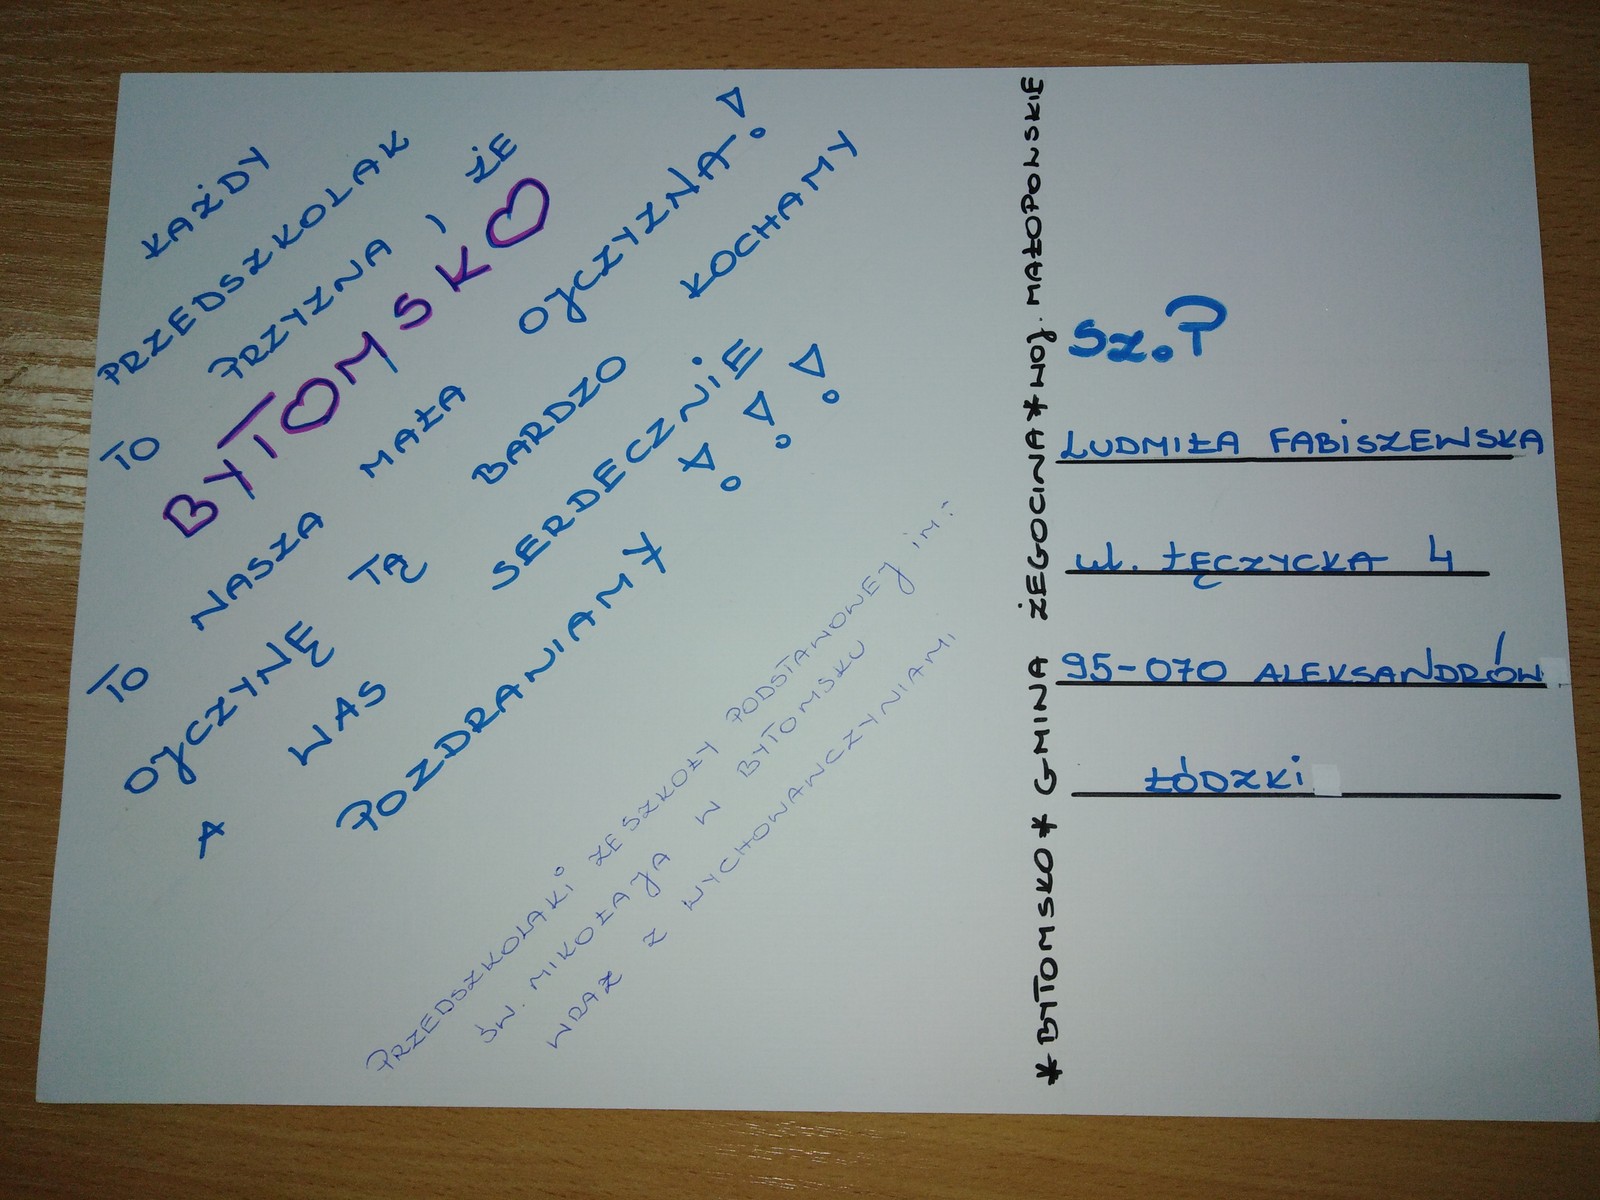 KAŻDY
PRZEDSZKOLAK
TO PRZYZNA, ŻE
BYTOMSKO
TO NASZA MAŁA OJCZYZNA!
OJCZYNĘ TĄ BARDZO KOCHAMY
A WAS SERDECZNIE
POZDRAWIAMY!!!
PRZEDSZKOLAKI ZE SZKOŁY PODSTAWOWEJ im:
ŚW. MIKOŁAJA W BYTOMSKU
WRAZ Z WYCHOWAWCZYNIAMI
*BYTOMSKO* GMINA ŻEGOCINA*WOJ. MAŁOPOLSKIE
Sz.P
LUDMIŁA FABISZEWSKA
ul. ŁĘCZYCKA 4
95-070 ALEKSANDRÓW
ŁÓDZKI